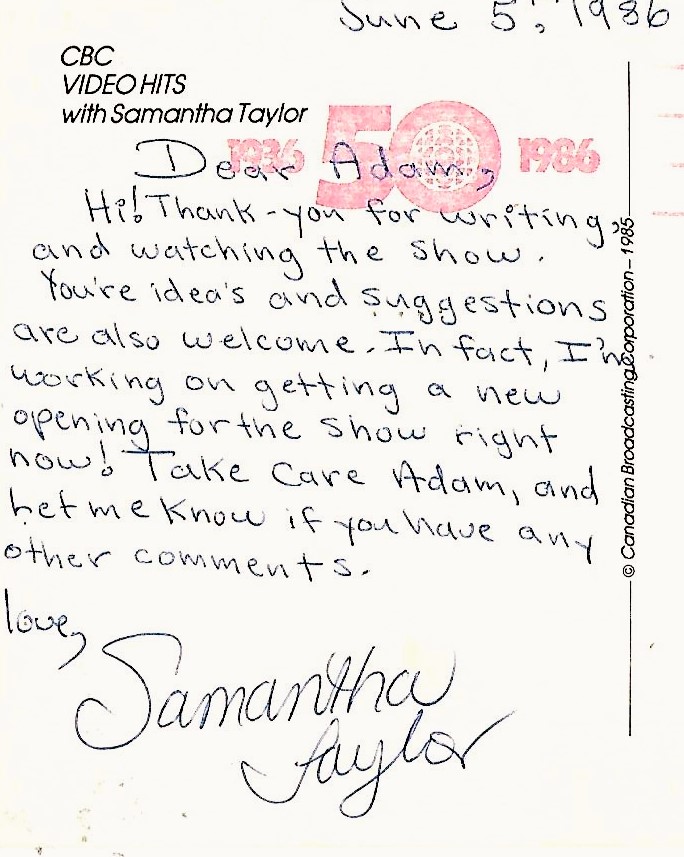 June 5, 1986
CBC
VIDEO HITS
with Samantha Taylor
1936 50 1986
Dear Adam,
Hi! Thank-you for writing,
and watching the show.
You're idea's and suggestions
are also welcome. In fact, I'm
working on getting a new
opening for the show right
now! Take Care Adam, and
let me know if you have any
other comments.
love,
Samantha
Taylor
© Canadian Broadcasting Corporation–1985